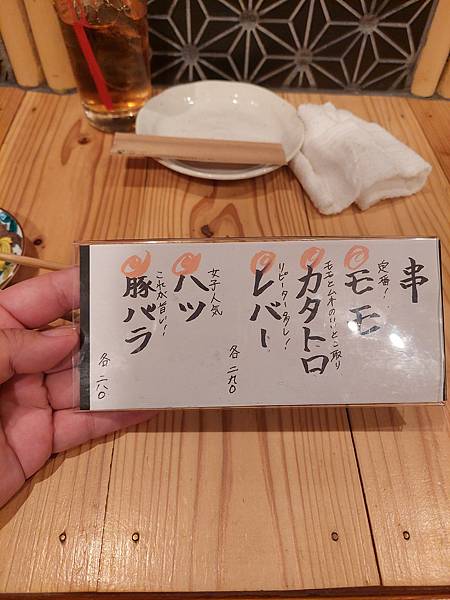 串
モモ
定番！
カタトロ
モモとムネのいいとこ取り
レバー
リピーター多し！
各 二九〇
ハツ
女子人気
豚バラ
これが旨い！
各 二八〇